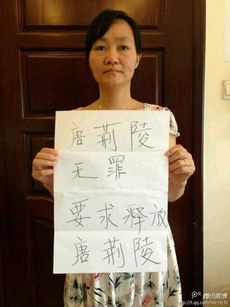 唐荆陵
无罪
要求释放
唐荆陵
腾讯微博